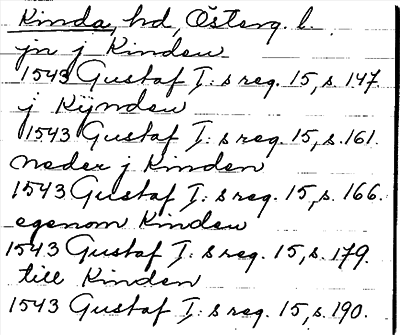 Kinda, hd, Österg. l.
jn j Kinden
1543 Gustaf I: s reg. 15, s. 147.
j Kijnden
1543 Gustaf I: s reg. 15, s. 161.
neder j Kinden
1543 Gustaf I: s reg. 15, s. 166.
egenom Kinden
1543 Gustaf I: s reg. 15, s. 179.
till Kinden
1543 Gustaf I: s reg. 15, s. 190.